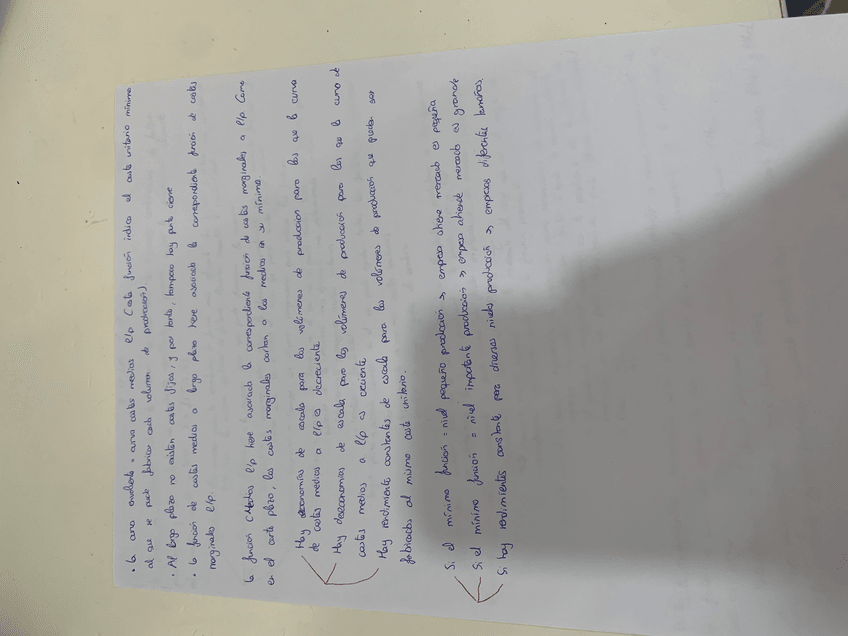 • la curva envolvente = curva costes medios l/p (esta función indica el coste unitario mínimo
al que se puede fabricar cada volumen de producción)
• Al largo plazo no existen costes fijos, y por tanto, tampoco hay punto cierre
• la función de costes medios a largo plazo tiene asociada la correspondiente función de costes
marginales l/p.
la función CMedios l/p tiene asociada la correspondiente función de costes marginales a l/p Como
en el corto plazo, los costes marginales cortan a los medios en su mínimo
Hay economías de escala para los volúmenes de producción para los que la curva
de costes medios a l/p es decreciente
Hay deseconomías de escala para los volúmenes de producción para los que la curva de
costes medios a l/p es creciente
Hay rendimientos constantes de escala para los volúmenes de producción que puedan ser
fabricados al mismo coste unitario.
Si el mínimo función = nivel pequeño producción > empresa atiene mercado es pequeña
Si el mínimo función = nivel importante producción > empresa atiende mercado es grande
Si hay rendimientos constante para diversos niveles producción > empresas diferentes tamaños.